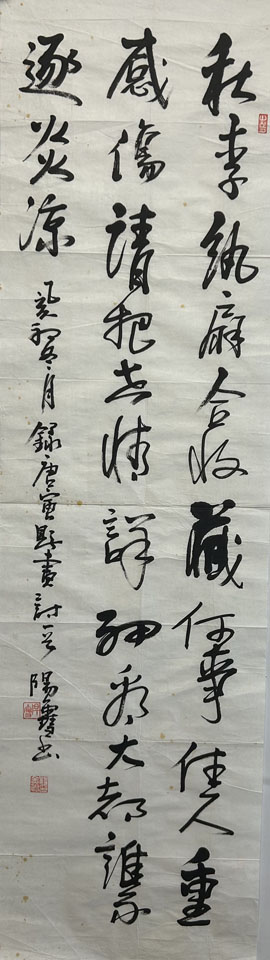 秋來紈扇合收藏何事佳人重
感傷請把世情詳細看大都誰不
逐炎涼 亥 月錄唐寅題畫詩一首 陽 書